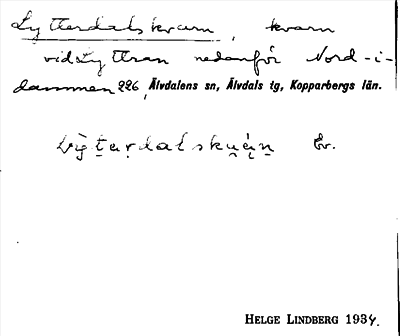 Lytterdalskvarn, kvarn
vid Lyttran nedanför Nord-i-
dammen 226, Älvdalens sn, Älvdals tg, Kopparbergs län.
Ev.
HELGE LINDBERG 1934.